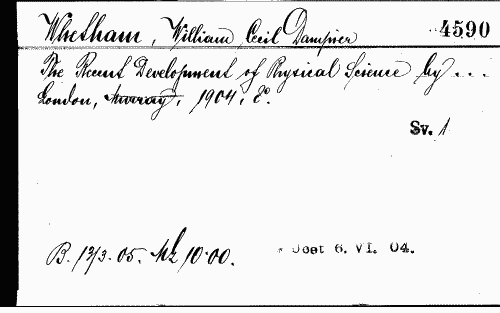 Whetham, William Cecil Dampier 4590
The Recent Development of Physical Science by ...
London, Murray, 1904, 8°.
Sv. 1
B. 13/3. 05. Mk 10.00. * Jost 6. VI. 04.